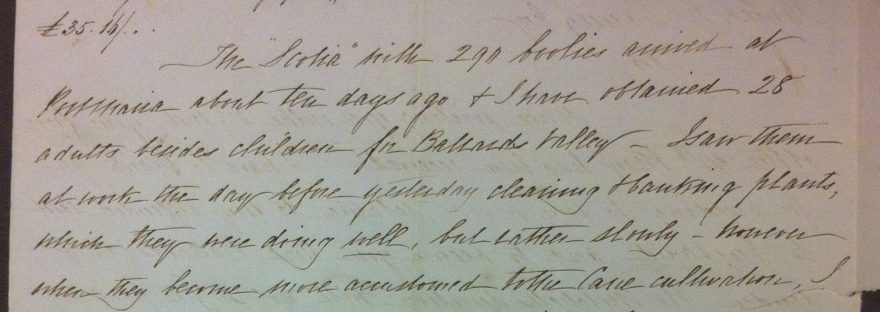 £35.16/..
The "Scotia" with 290 Coolies arrived at
Portmaria about ten days ago & I have obtained 28
adults besides children for Ballards Valley – I saw them
at work the day before yesterday cleaning & banking plants,
which they were doing well, but rather slowly – however
when they become more accustomed to the Cane cultivation, I